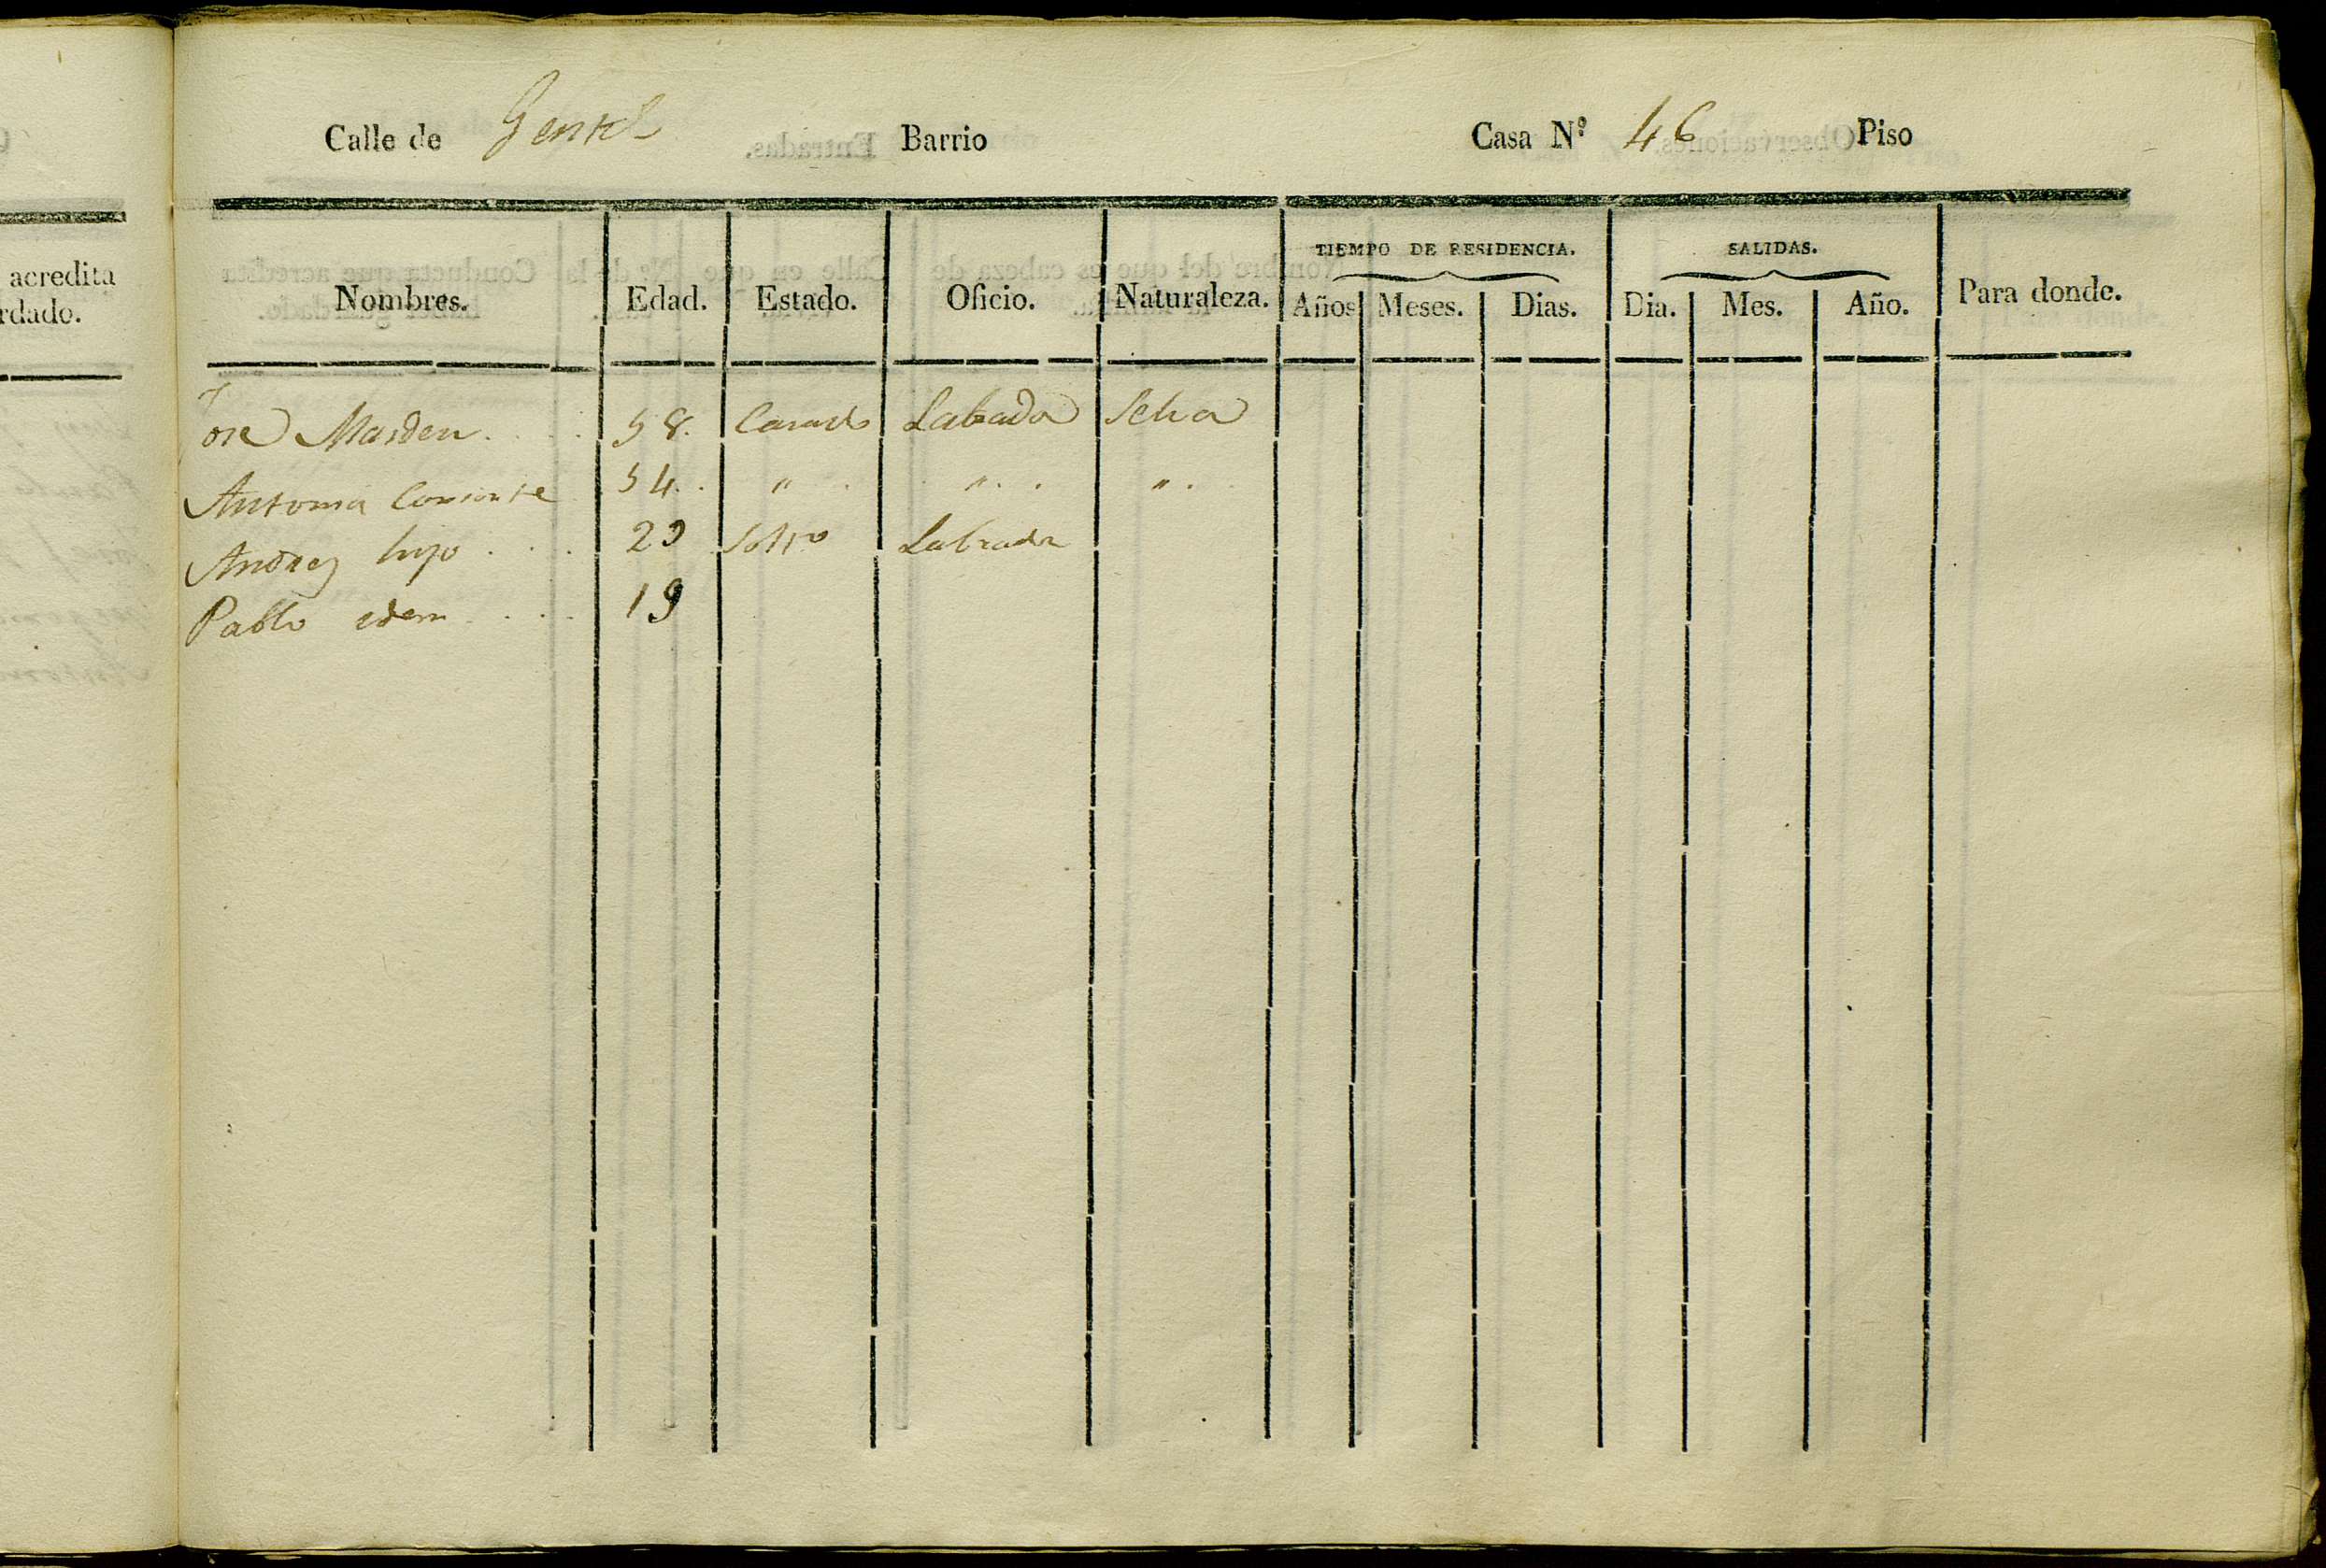 acredita
rdado.
Calle de Barrio Casa Nº 46 Piso
TIEMPO DE RESIDENCIA. SALIDAS.
Nombres. Edad. Estado. Oficio. Naturaleza. Años Meses. Dias. Dia. Mes. Año. Para donde.
Jose Masdeu 58. Casado Labrador Selva
Antonia 54. " " "
Andres hijo 29 Labrador
Pablo idem 19